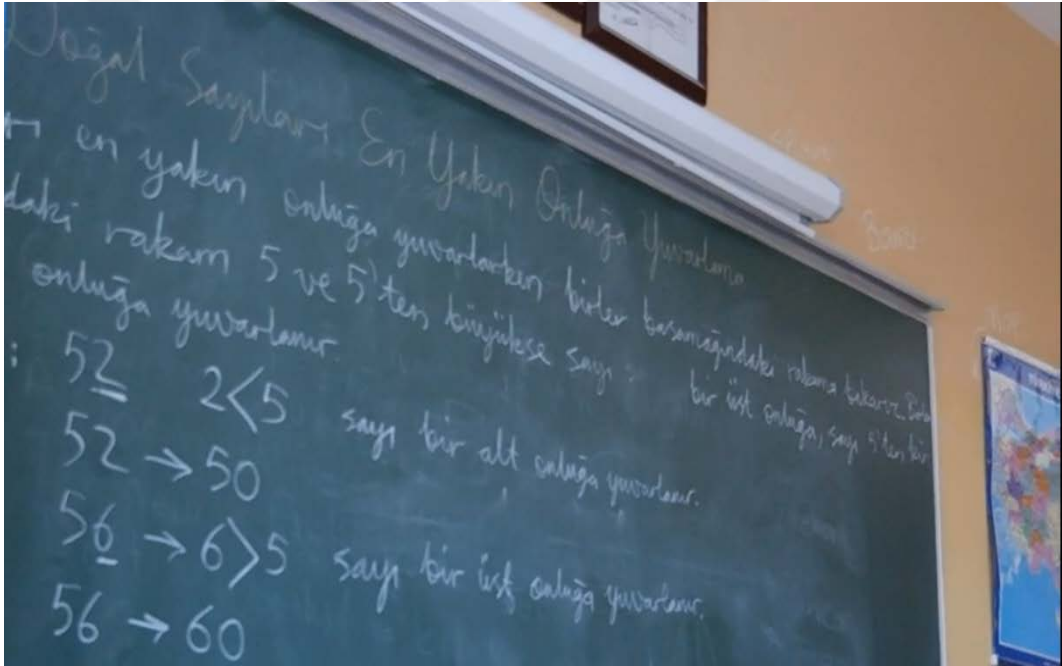 Doğal Sayıları En Yakın Onluğa Yuvarlama
en yakın onluğa yuvarlarken birler basamağındaki rakama bakarız.
daki rakam 5 ve 5'ten büyükse sayı bir üst onluğa, sayı 5'ten
onluğa yuvarlanır.
: 52 2<5 sayı bir alt onluğa yuvarlanır.
52 → 50
56 → 6>5 sayı bir üst onluğa yuvarlanır.
56 → 60